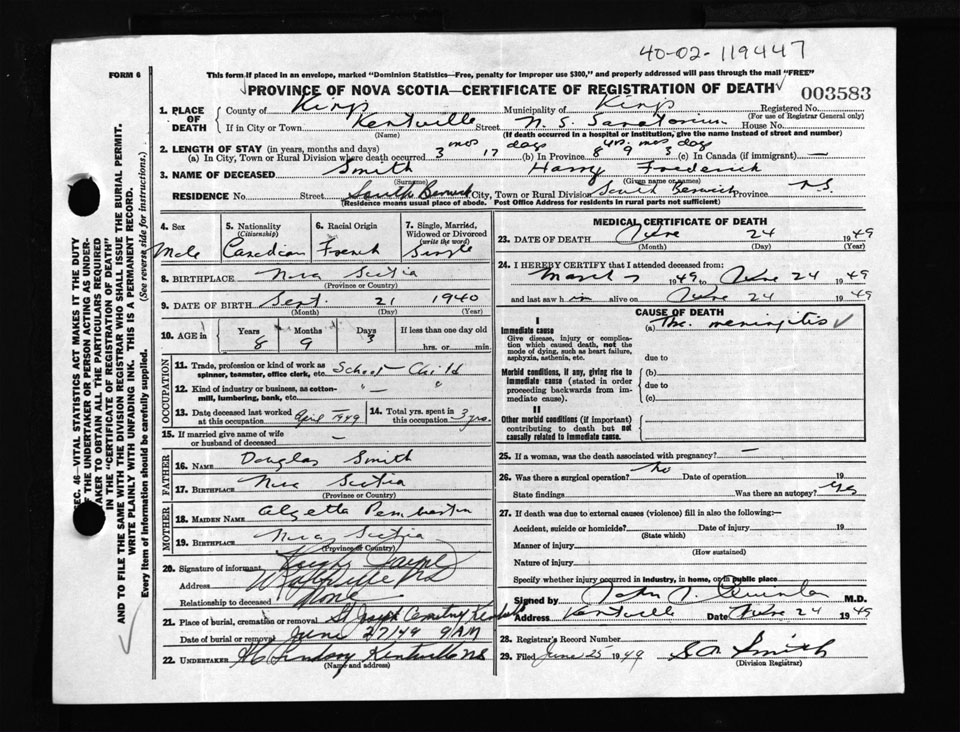 40-02-119447
FORM 6
This form if placed in an envelope, marked "Dominion Statistics—Free, penalty for improper use $300," and properly addressed will pass through the mail "FREE"
PROVINCE OF NOVA SCOTIA—CERTIFICATE OF REGISTRATION OF DEATH
003583
1. PLACE OF DEATH
County of Kings Municipality of Kings Registered No.
(For use of Registrar General only)
If in City or Town Kentville Street N. S. Sanatorium House No.
(Name) (If death occurred in a hospital or institution, give the name instead of street and number)
2. LENGTH OF STAY (in years, months and days)
(a) In City, Town or Rural Division where death occurred 3 mos 17 days (b) In Province 8 yrs. 9 mos 3 days (c) In Canada (if immigrant) —
3. NAME OF DECEASED Smith Harry Frederick
(Surname) (Given name or names)
RESIDENCE No. Street South Berwick City, Town or Rural Division South Berwick Province N.S.
(Residence means usual place of abode. Post Office Address for residents in rural parts not sufficient)
4. Sex
Male
5. Nationality
(Citizenship)
Canadian
6. Racial Origin
French
7. Single, Married, Widowed or Divorced
(write the word)
Single
8. BIRTHPLACE Nova Scotia
(Province or Country)
9. DATE OF BIRTH Sept. 21 1940
(Month) (Day) (Year)
10. AGE in
Years Months Days If less than one day old
8 9 3 hrs. or min.
OCCUPATION
11. Trade, profession or kind of work as spinner, teamster, office clerk, etc. School Child
12. Kind of industry or business, as cotton-mill, lumbering, bank, etc. " — "
13. Date deceased last worked at this occupation April 1949
14. Total yrs. spent in this occupation 3 yrs.
15. If married give name of wife or husband of deceased —
FATHER
16. NAME Douglas Smith
17. BIRTHPLACE Nova Scotia
(Province or Country)
MOTHER
18. MAIDEN NAME
19. BIRTHPLACE Nova Scotia
(Province or Country)
20. Signature of informant Hugh
Address Wolfville NS
Relationship to deceased None
21. Place of burial, cremation or removal St Joseph Cemetery
Date of burial or removal June 27/49 9 AM
22. UNDERTAKER Lindsay Kentville NS
(Name and address)
MEDICAL CERTIFICATE OF DEATH
23. DATE OF DEATH June 24 1949
(Month) (Day) (Year)
24. I HEREBY CERTIFY that I attended deceased from:
March 7 1949 to June 24 1949
and last saw him alive on June 24 1949
CAUSE OF DEATH
I
Immediate cause (a) Tbc. meningitis
Give disease, injury or complication which caused death, not the mode of dying, such as heart failure, asphyxia, asthenia, etc.
due to
Morbid conditions, if any, giving rise to immediate cause (stated in order proceeding backwards from immediate cause).
(b)
due to
(c)
II
Other morbid conditions (if important) contributing to death but not causally related to immediate cause.
25. If a woman, was the death associated with pregnancy? —
26. Was there a surgical operation? No Date of operation 19
State findings Was there an autopsy? Yes
27. If death was due to external causes (violence) fill in also the following:—
Accident, suicide or homicide? Date of injury 19
(State which)
Manner of injury
(How sustained)
Nature of injury
Specify whether injury occurred in industry, in home, or in public place
Signed by John J. Quinlan M.D.
Address Kentville Date June 24 1949
28. Registrar's Record Number
29. Filed June 25 1949 Smith
(Division Registrar)
SEC. 46—VITAL STATISTICS ACT MAKES IT THE DUTY
OF THE UNDERTAKER OR PERSON ACTING AS UNDER-
TAKER TO OBTAIN ALL THE PARTICULARS REQUIRED
IN THE "CERTIFICATE OF REGISTRATION OF DEATH"
AND TO FILE THE SAME WITH THE DIVISION REGISTRAR WHO SHALL ISSUE THE BURIAL PERMIT.
WRITE PLAINLY WITH UNFADING INK. THIS IS A PERMANENT RECORD.
Every item of information should be carefully supplied. (See reverse side for instructions.)